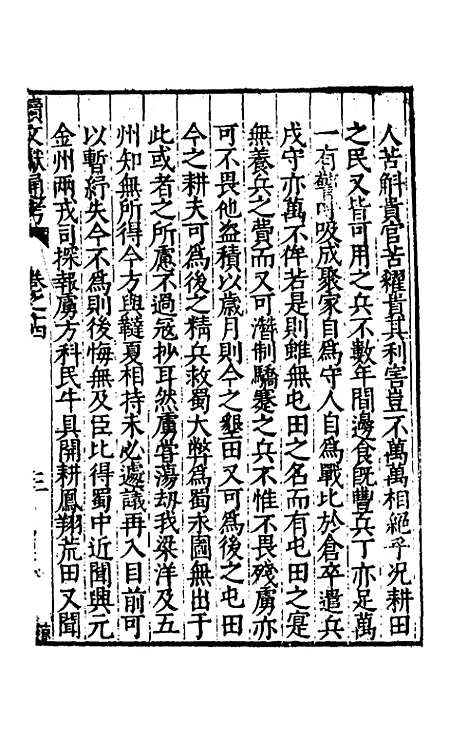 人苦斛貴官苦糴貴其利害豈不萬萬相絕乎况耕田
之民又皆可用之兵不數年間邊食旣豐兵丁亦足萬
一有警呼吸成聚家自爲守人自爲戰比於倉卒遣兵
戍守亦萬不侔若是則雖無屯田之名而有屯田之寔
無養兵之費而又可潛制驕蹇之兵不惟不畏殘虜亦
可不畏他盗積以歲月則今之墾田又可爲後之屯田
今之耕夫可爲後之精兵救蜀大弊爲蜀永圖無出于
此或者之所慮不過冦抄耳然虜嘗蕩刼我梁洋及五
州知無所得今方與韃夏相持未必遽議再入目前可
以暫紓失今不爲則後悔無及臣比得蜀中近聞興元
金州兩戎司探報虜方科民牛具開耕鳳翔荒田又聞
續文獻通考
卷之四
三